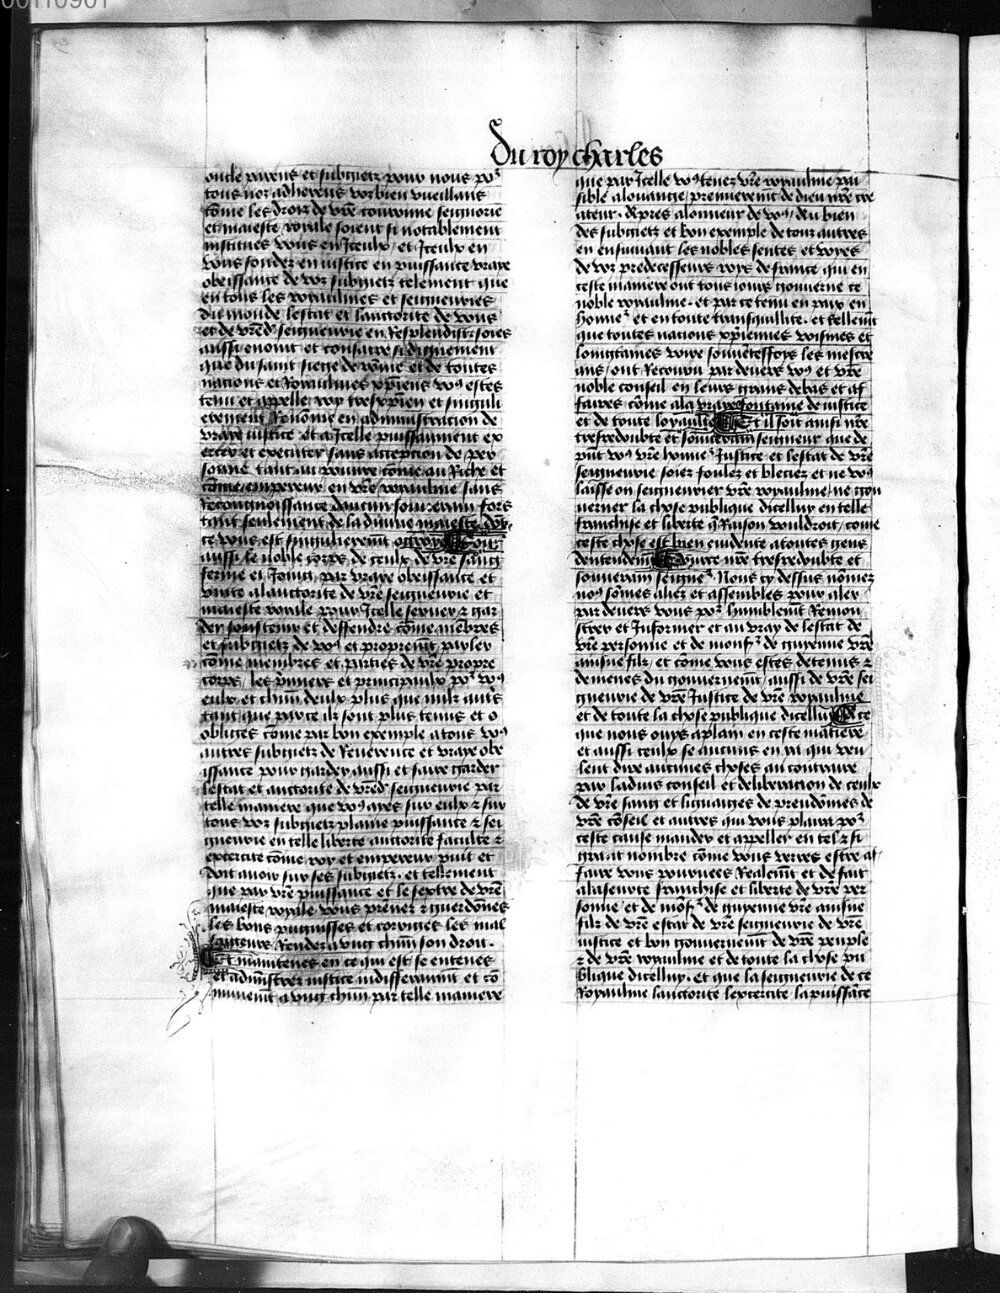 00110901
Du roy charles
oncle parens et subgietz pour nous po᷑
tous noz adherens voz bien vueillans
cõme les droiz de vr̃e couronne seignorie
et maieste royale soient si notablement
institues vous en Iceulx et Iceulx en
vous fondez en iustice en puissance vraye
obeissance de voz subgietz telement que
en tous les royaulmes et seigneuries
du monde lestat et lauctorite de vous
et de vr̃ed' seigneurie en Resplendist soies
aussi enoint et consacre si dignement
que du saint siege de rõme et de toutes
nacions et Royaulmes xp̃iens vo9 estes
tenu et appelle roy tresxp̃ien et singuli
erement Renõme en administracion de
vraye iustice et a Icelle puissamment ex
ercer et executer sans acception de per
sonne tant au pouure cõme au Riche et
cõme empereur en vr̃e royaulme sans
Recongnoissance daucun souuerain fors
tant seulement de la diuine maieste dõt
ce vous est singulierem̃t octroye Et pour
aussi le noble corps de ceulx de vr̃e sang
ferme et Ioint par vraye obeissance et
vnite a lauctorite de vr̃e seigneurie et
maieste royale pour Icelle seruer et gar
der soustenir et deffendre cõme mẽbres
et subgietz de vo9 et proprem̃t parler
cõme membres et parties de vr̃e propre
corps les p̃miers et principaulx po᷑ vo9
eulx et chũn deulx plus que nulz aut̃s
tant que parce ilz sont plus tenus et o
obliges cõme par bon exemple a tous vo9
autres subgietz de Reuerence et vraye obe
issance pour garder aussi et faire garder
lestat et auctorite de vr̃ed' seigneurie par
telle maniere que vo9 ayes sur eulx et sur
tous voz subgietz plaine puissance et sei
gneurie en telle liberte auctorite faculte et
exercite cõme roy et empereur puit et
doit auoir sur ses subgietz . et tellement
que par vr̃e puissance et le sextre de vr̃e
maieste royale vous prẽnez et guerdõnes
les bons pugnisses et corriges les mal
faicteurs Rendez a vng chũn son droit .
Et maintenes en ce qui est se entenes
et adm̃strez iustice indifferanm̃t et cõ
munem̃t a vng chũn par telle maniere
que par Icelle vo9 tenez vr̃e royaulme pai
sible a louange premierem̃t de dieu nr̃e cre
ateur . Apres alonneur de vo9 / du bien
des subgietz et bon exemple de tous autres
en ensuiuant les nobles sentes et voyes
de voz predecesseurs roys de france qui en
ceste maniere ont tous iours gouuerne ce
noble royaulme . et par ce tenu en paix en
honne᷑ et en toute transquillite . et tellem̃t
que toutes nacions xp̃iennes voisines et
loingtaines voire souuẽtessoys les mescre
ans / ont Recouru par deuers vo9 et vr̃e
noble conseil en leurs grans debas et af
faires cõme a la vraye fontaine de iustice
et de toute loyaulte Et il soit ainsi nr̃e
tresredoubte et souuerain seigneur que de
p̃nt vo9 vr̃e honne᷑ Iustice et lestat de vr̃e
seigneurie soiez foulez et blecies et ne vo9
laisse on seigneurier vr̃e royaulme / ne gou
uerner la chose publique dicelluy en telle
franchise et liberte q̃ Raison vouldroit / cõme
ceste chose est bien euidente a toutes gens
dentendem̃t Pource nr̃e tresredoubte et
souuerain seigne᷑ . Nous cy dessus nõmez
no9 sõmes aliez et assembles pour aler
par deuers vous po᷑ humblem̃t Remon
strer et Informer et au vray de lestat de
vr̃e personne et de mons᷑ de guyenne vr̃e
ainsne filz . et cõme vous estes detenus et
demenes du gouuernem̃t / aussi de vr̃e sei
gneurie de vr̃e Iustice de vr̃e royaulme
et de toute la chose publique dicelluy A ce
que nous ouys aplain en ceste matiere
et aussi ceulx se aucuns en ya qui veu
lent dire aucunes choses au contraire
par laduis conseil et deliberacion de ceulx
de vr̃e sang et lignaiges de preudõmes de
vr̃e cõseil et autres qui vous plaira po᷑
ceste cause mander et appeller en tel et si
grãt nombre cõme vous verres estre af
faire vous pourueez Realem̃t et de fait
a la seurte franchise et liberte de vr̃e per
sonne et de mõs᷑ de guyenne vr̃e ainsne
filz de vr̃e estat de vr̃e seigneurie de vr̃e
iustice et bon gouuernem̃t de vr̃e peuple
et de vr̃e royaulme et de toute la chose pu
blique dicelluy . et que la seigneurie de ce
Royaulme lauctorite lexercite la puissãce